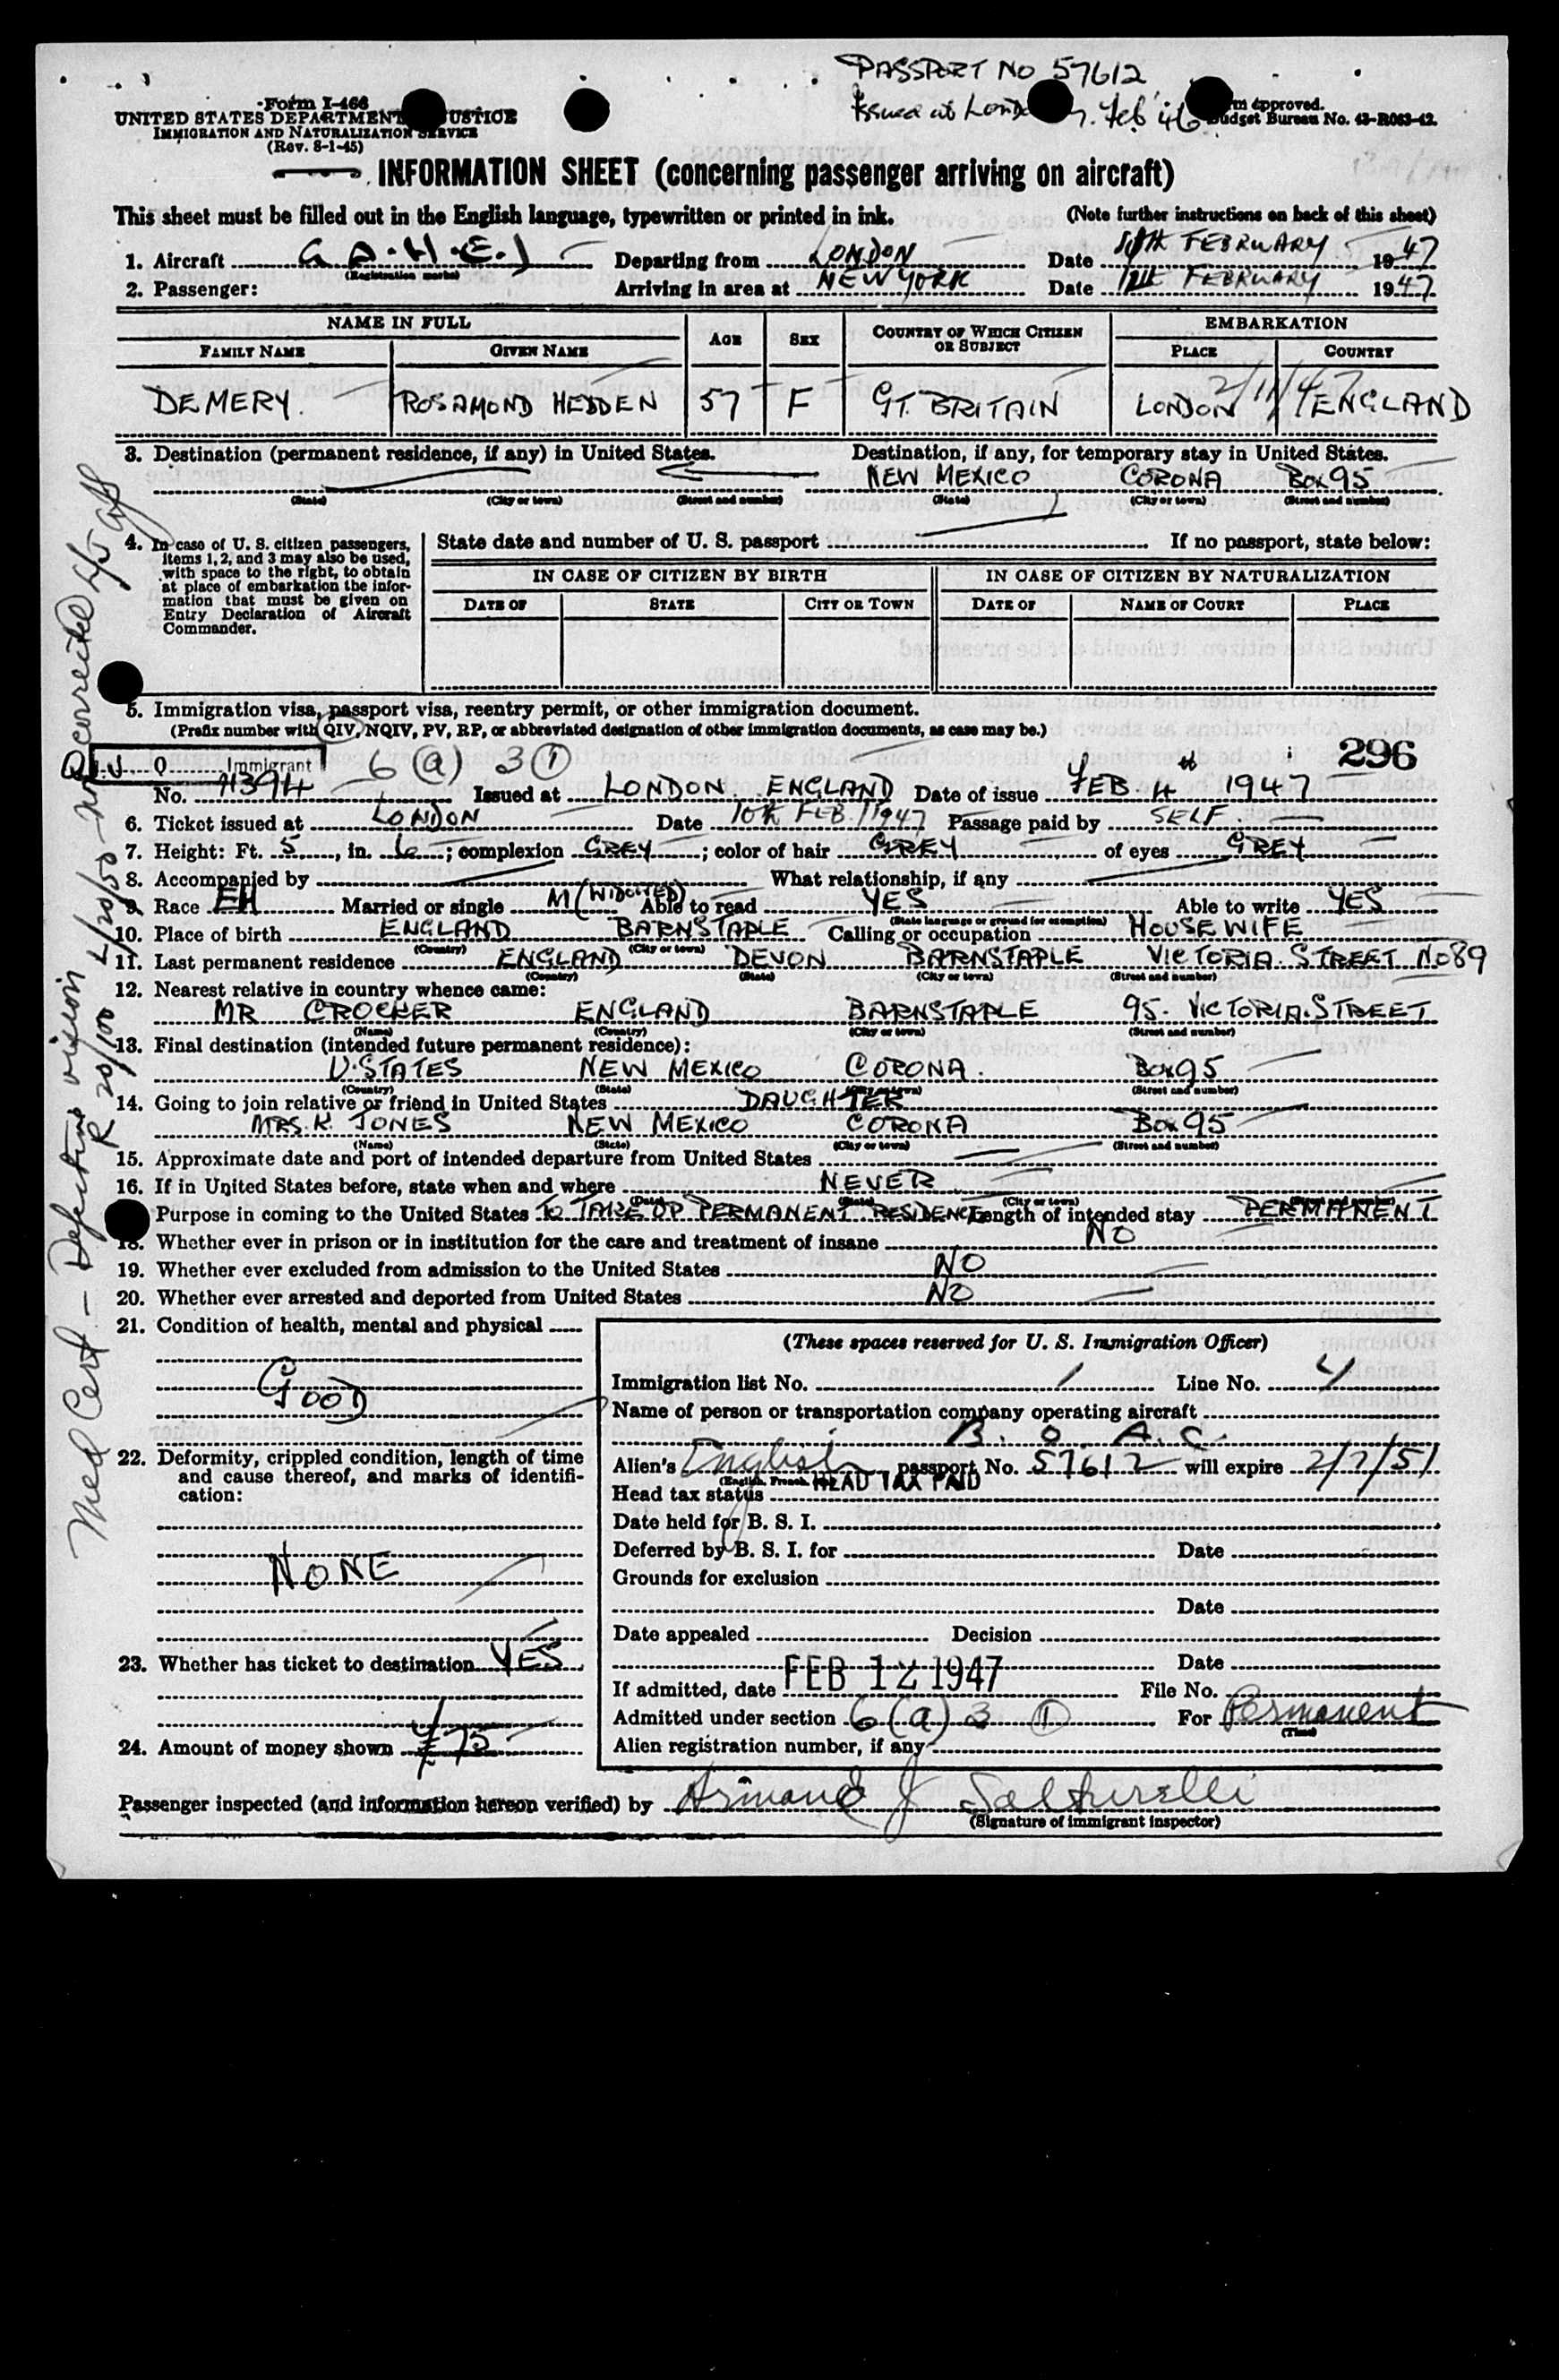 PASSPORT NO 57612
Issued at London 7. Feb '46
Form I-466
UNITED STATES DEPARTMENT JUSTICE
IMMIGRATION AND NATURALIZATION SERVICE
(Rev. 8-1-45)
approved.
Budget Bureau No. 43-R063-42.
INFORMATION SHEET (concerning passenger arriving on aircraft)
This sheet must be filled out in the English language, typewritten or printed in ink. (Note further instructions on back of this sheet)
1. Aircraft G A.H.E.J Departing from LONDON Date FEBRUARY 1947
(Registration marks)
2. Passenger: Arriving in area at NEW YORK Date 12th FEBRUARY 1947
NAME IN FULL AGE SEX COUNTRY OF WHICH CITIZEN OR SUBJECT EMBARKATION
FAMILY NAME GIVEN NAME PLACE COUNTRY
2/11/47
DEMERY. ROSAMOND HEDDEN 57 F GT. BRITAIN LONDON ENGLAND
3. Destination (permanent residence, if any) in United States. Destination, if any, for temporary stay in United States.
NEW MEXICO CORONA Box 95
(State) (City or town) (Street and number) (State) (City or town) (Street and number)
4. In case of U. S. citizen passengers, items 1, 2, and 3 may also be used, with space to the right, to obtain at place of embarkation the information that must be given on Entry Declaration of Aircraft Commander.
State date and number of U. S. passport If no passport, state below:
IN CASE OF CITIZEN BY BIRTH IN CASE OF CITIZEN BY NATURALIZATION
DATE OF STATE CITY OR TOWN DATE OF NAME OF COURT PLACE
5. Immigration visa, passport visa, reentry permit, or other immigration document.
(Prefix number with QIV, NQIV, PV, RP, or abbreviated designation of other immigration documents, as case may be.)
Q Immigrant 6 (a) 3 (1) 296
No. 11394 Issued at LONDON ENGLAND Date of issue FEB. 4 1947
6. Ticket issued at LONDON Date 10th FEB. 1947 Passage paid by SELF.
7. Height: Ft. 5, in. 6; complexion GREY; color of hair GREY of eyes GREY
8. Accompanied by What relationship, if any
9. Race EH Married or single M (WIDOWED) Able to read YES Able to write YES
(State language or ground for exemption)
10. Place of birth ENGLAND BARNSTAPLE Calling or occupation HOUSEWIFE
(Country) (City or town)
11. Last permanent residence ENGLAND DEVON BARNSTAPLE VICTORIA. STREET No 89
(Country) (State) (City or town) (Street and number)
12. Nearest relative in country whence came:
MR CROCKER ENGLAND BARNSTAPLE 95. VICTORIA. STREET
(Name) (Country) (City or town) (Street and number)
13. Final destination (intended future permanent residence):
U.STATES NEW MEXICO CORONA. Box 95
(Country) (State) (City or town) (Street and number)
14. Going to join relative or friend in United States DAUGHTER
MRS. K. JONES NEW MEXICO CORONA Box 95
(Name) (State) (City or town) (Street and number)
15. Approximate date and port of intended departure from United States
16. If in United States before, state when and where NEVER
(Date) (State) (City or town) (Street and number)
Purpose in coming to the United States TO TAKE UP PERMANENT RESIDENCE Length of intended stay PERMANENT
18. Whether ever in prison or in institution for the care and treatment of insane NO
19. Whether ever excluded from admission to the United States NO
20. Whether ever arrested and deported from United States NO
21. Condition of health, mental and physical
GOOD
22. Deformity, crippled condition, length of time and cause thereof, and marks of identification:
NONE
23. Whether has ticket to destination YES
24. Amount of money shown £75
(These spaces reserved for U. S. Immigration Officer)
Immigration list No. 1 Line No. 4
Name of person or transportation company operating aircraft
B. O. A. C.
Alien's English passport No. 57612 will expire 2/7/51
Head tax status HEAD TAX PAID
Date held for B. S. I.
Deferred by B. S. I. for Date
Grounds for exclusion
Date
Date appealed Decision
Date
If admitted, date FEB 12 1947 File No.
Admitted under section 6 (a) 3 (1) For Permanent
(Time)
Alien registration number, if any
Passenger inspected (and information hereon verified) by Armand J Salturelli
(Signature of immigrant inspector)
Med Cert - Defective vision L 20/50 - not corrected
R 20/100